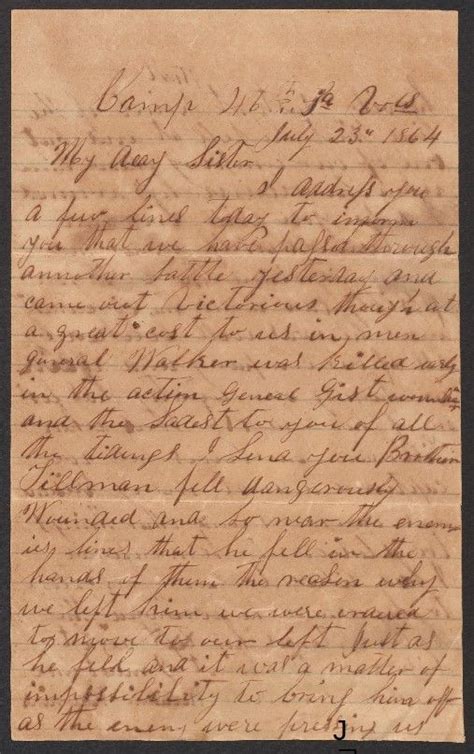 Camp 46th Ga Vols
July 23rd 1864
My Dear Sister
I address you
a few lines today to inform
you that we have passed through
annother battle yesterday and
came out victorious though at
a great cost to us in men
general Walker was killed early
in the action Geneal Gist wounded
and the sadest to you of all
the tidings I send you Brother
Tillman fell dangerously
Wounded and so near the enem
ies lines that he fell in the
hands of them the reason why
we left him we were ordered
to move to our left Just as
he fell and it was a matter of
impossibility to bring him off
as the enemy were pressing us
J